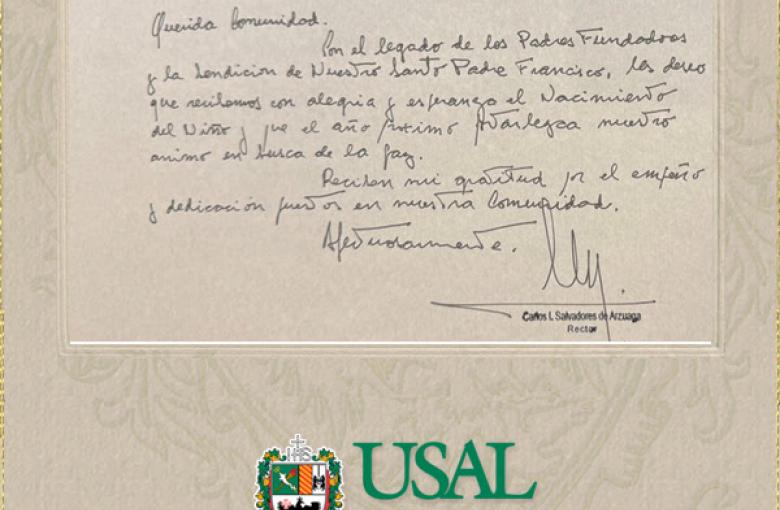 Querida Comunidad.
Por el legado de los Padres Fundadores
y la bendición de Nuestro Santo Padre Francisco, les deseo
que recibamos con alegría y esperanza el Nacimiento
del Niño y que el año próximo fortalezca nuestro
animo en busca de la paz.
Reciban mi gratitud por el empeño
y dedicación puestos en nuestra Comunidad.
Afectuosamente.
Carlos I. Salvadores de Arzuaga
Rector
IHS
USAL